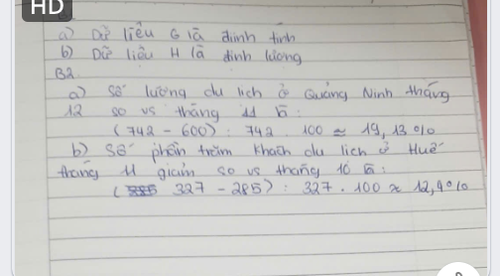 HD
a) Dữ liệu G là định tính
b) Dữ liệu H là định lượng
B2
a) Số lượng du lịch ở Quảng Ninh tháng
12 so vs tháng 11 là :
(742 - 600) : 742 . 100 ≈ 19,13%
b) Số phần trăm khách du lịch ở Huế
tháng 11 giảm so vs tháng 10 là :
( 327 - 285) : 327 . 100 ≈ 12,9%